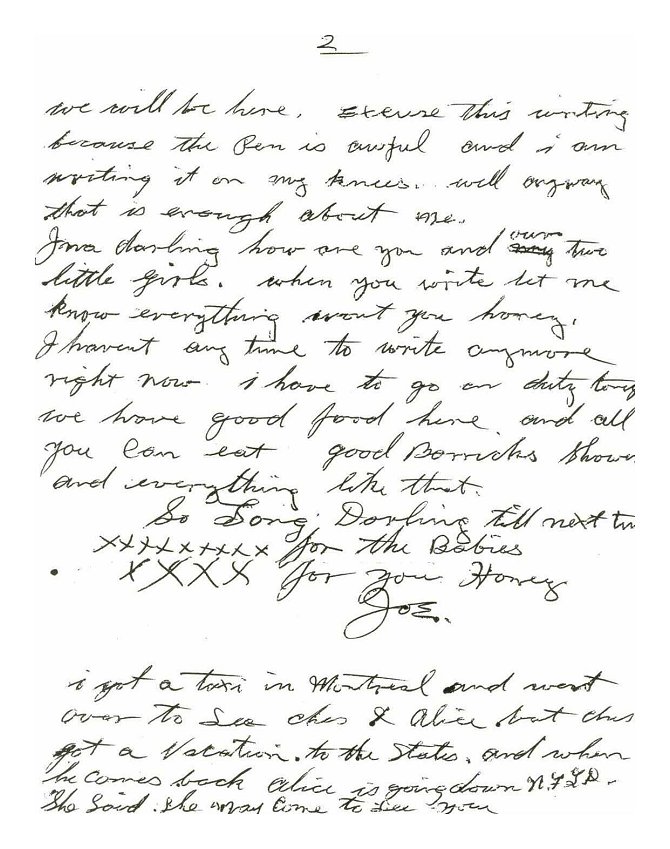 2
we will be here. Excuse this writing
because the Pen is awful and i am
writing it on my knees. well anyway
that is enough about me.
darling how are you and our two
little girls. when you write let me
know everything wont you honey.
I havent any time to write anymore
right now i have to go on duty
we have good food here and all
you can eat good Barricks Shower
and everything like that.
So Long Darling till next
xxxxxxxxx for the Babies
XXXX for you Honey
Joe.
i got a taxi in Montreal and went
over to See ches & Alice but ches
got a Vacation to the States. and when
he comes back alice is going down NFLD.
She Said She may Come to see you